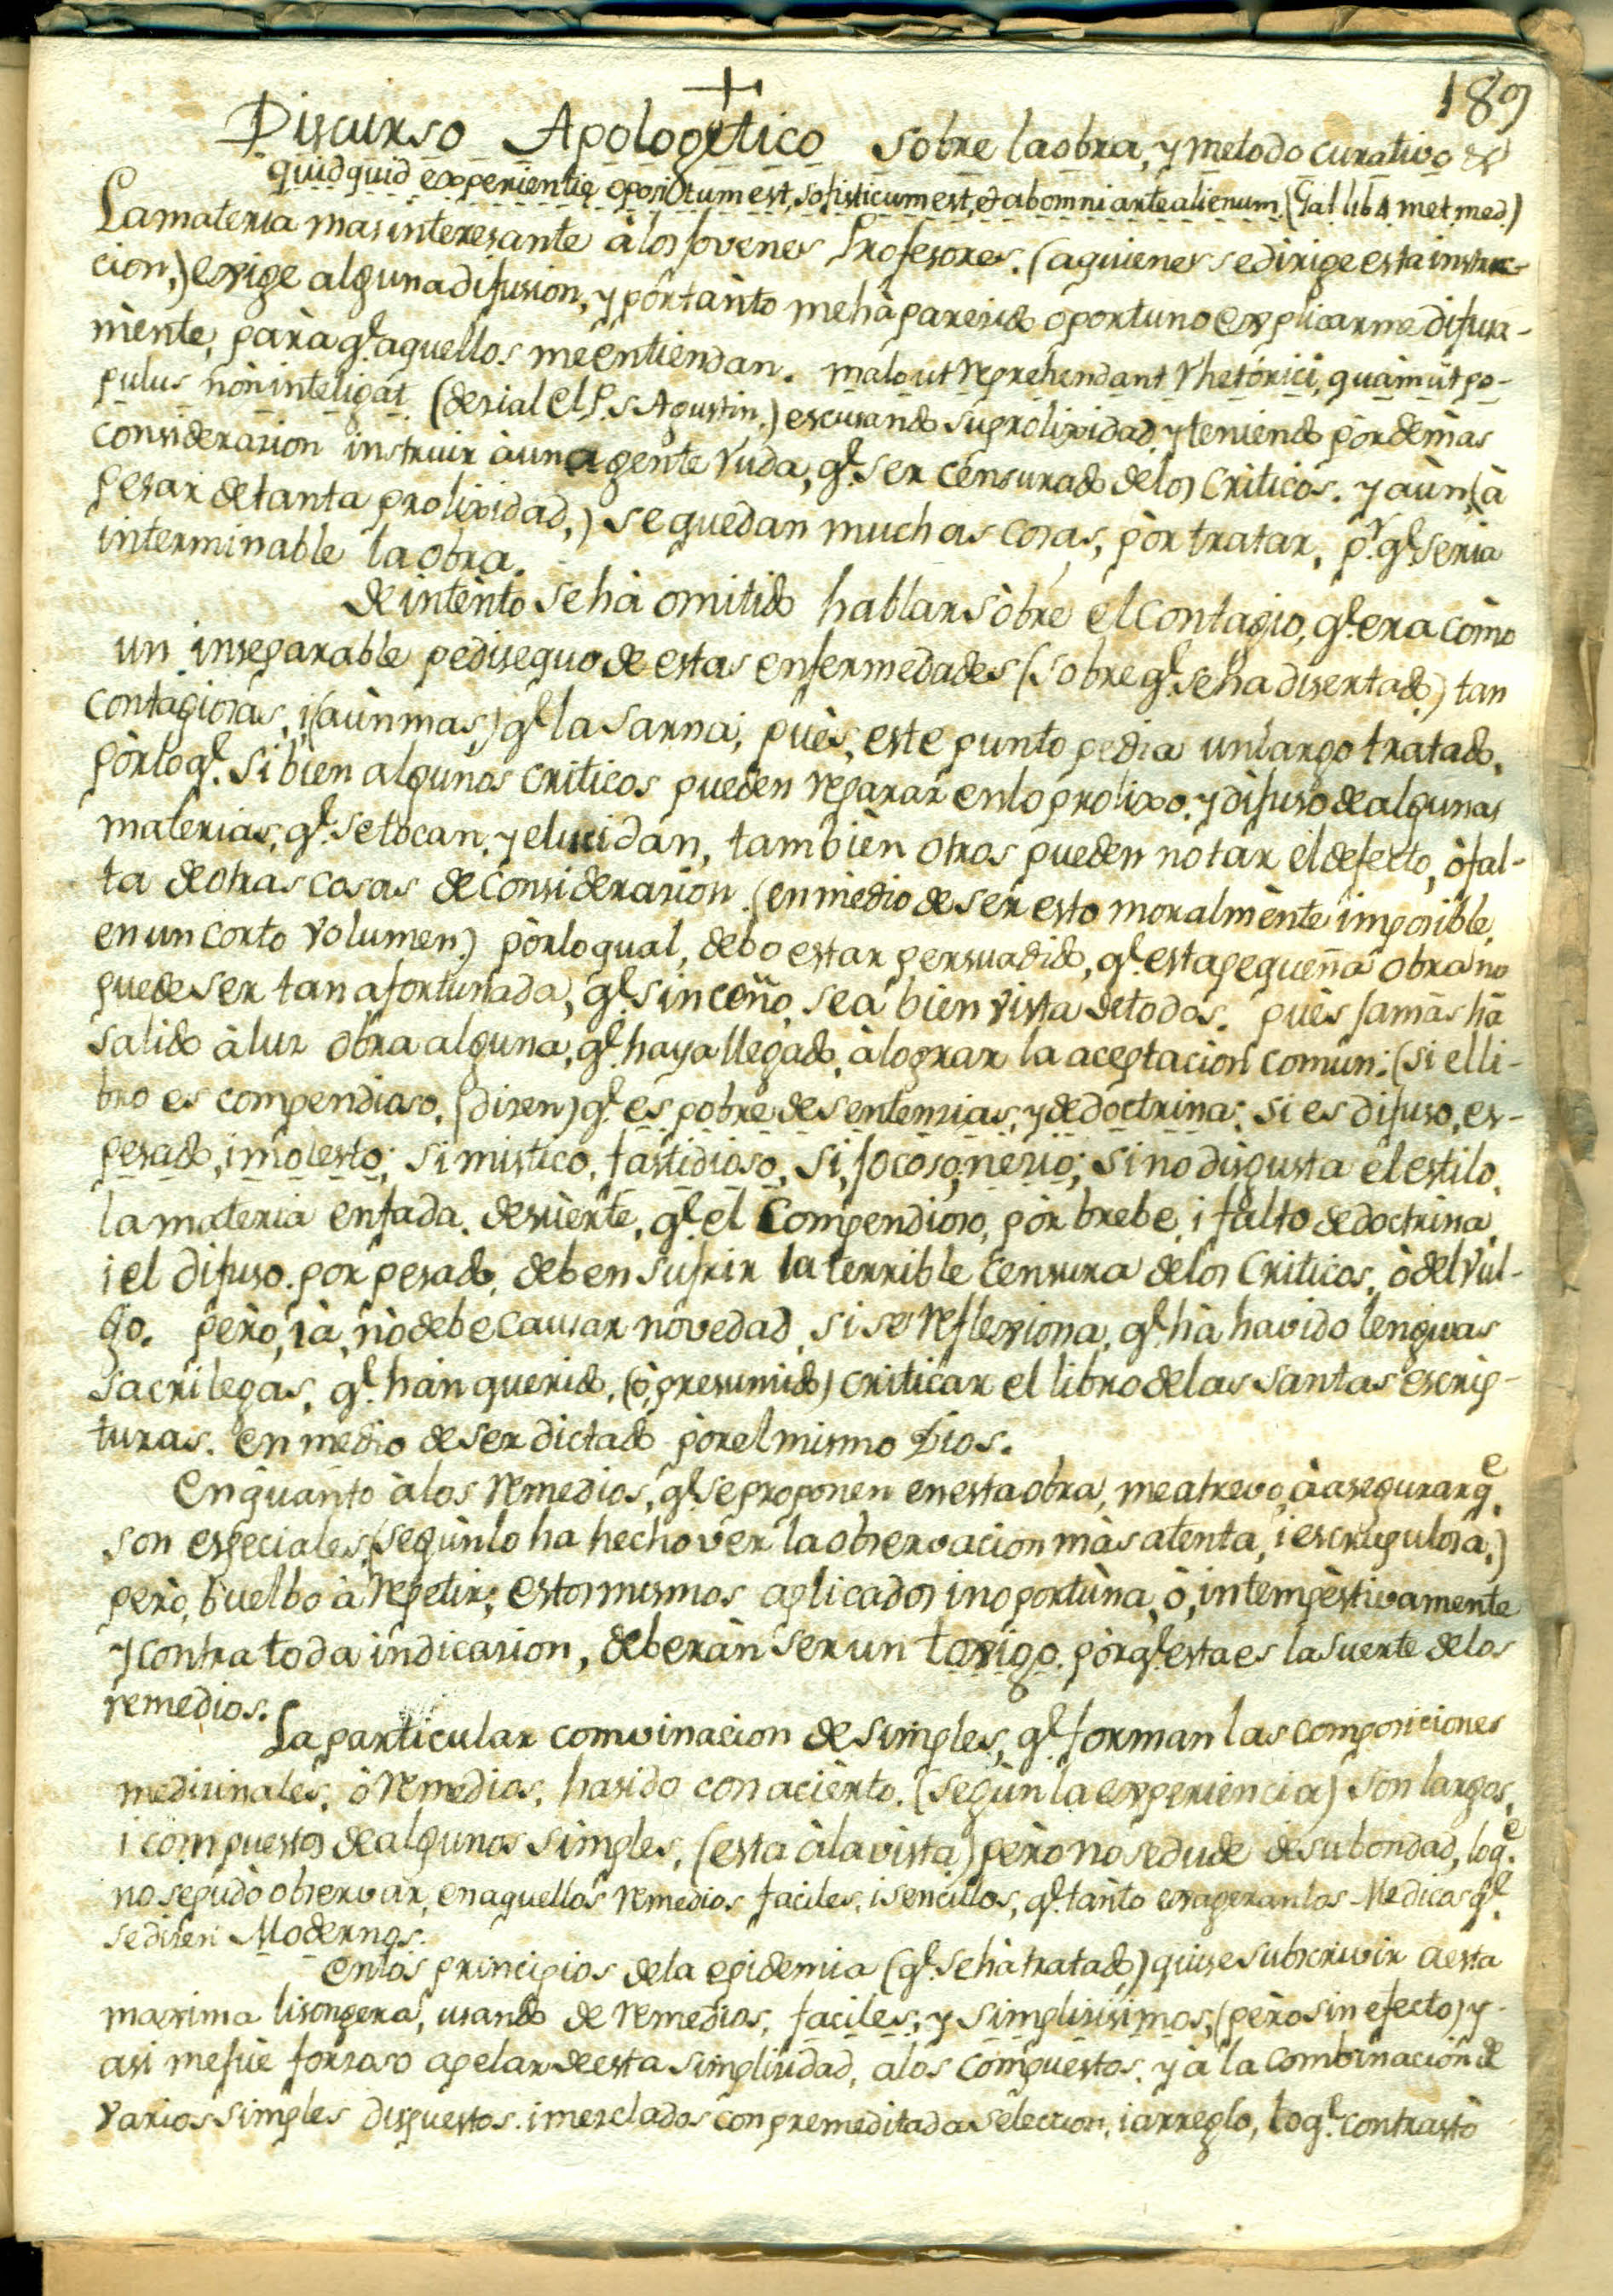 189
Discurso Apologetico sobre la obra, y metodo curativo &
quidquid experientię opositum est, sofisticum est, et ab omni arte alienum. (Gal lib 4 met med.)
La materia mas interesante à los Jovenes Profesores. (a quienes se dirige esta instruc-
cion,) exige alguna difusion, y pòr tanto me hà parecido oportuno explicarme difusa-
mènte, parà q.e aquellos me entiendan. malo ut reprehendant rhetòrici, quàm ùt po-
pulus nòn inteligat. (desia el P. S Agustin.) escusando su prolixidad, y teniendo pòr demàs
consideracion instruir à una gente ruda, q.e ser censurado de los Criticos. y aùn, (à
pesar de tanta prolixidad,) se quedan muchas cosas, pòr tratar, p.r q.e seria
interminable la obra.
de intènto se hà omitido hablar sòbre el contagio, q.e era còmo
un inseparable pedisequo de estas enfermedades (sobre q.e se ha disertado) tan
contagiosas, i (aùn mas) q.e la sarna; puès, este punto pedia un largo tratado,
pòr lo q.e si bien algunos criticos pueden reparar en lo prolixo, y difuso de algunas
materias, q.e se tocan, y elucidan, tambièn otros pueden notar el defecto, ò fal-
ta de otras cosas de consideracion (en mèdio de ser esto moralmènte imposible,
en un corto volumen.) pòr lo qual, debo estar persuadido, q.e esta pequeña obra no
puede ser tan afortunada, q.e sin ceño, sea bien vista de todos. puès jamàs hà
salido à luz obra alguna, q.e haya llegado, à lograr la aceptacion comun: (si el li-
bro es compendioso, (dicen) q.e es pobre de sentencias, y de doctrina; si es difuso, es-
pesado, i molesto; si mistico, fastidioso, si, jocoso, necio; si no disgusta el estilo,
la materia enfada. de suèrte, q.e el Compendioso, pòr brebe, i falto de doctrina,
i el difuso. por pesado, deben sufrir la terrible censura de los Criticos, ò del vul-
go. pèro, ià, nò debe causar novedad, si se reflexiona, q.e hà havido lenguas
sacrilegas, q.e hàn querido, (ò presumido) criticar el libro de las santas escrip-
turas. en medio de ser dictado pòr el mismo Dios.
En quanto à los remedios, q.e se proponen en esta obra, me atrevo, à asegurar q.e
son especiales, (segùn lo ha hecho ver la observacion màs atenta, i escrupulosa.)
pèro, buelbo à repetir; estos mismos aplicados inoportùna, ò, intempèstivamente
y contra toda indicacion, deberàn ser un toxigo. pòrq.e esta es la suerte de los
remedios.
La particular comvinacion de simples, q.e forman las composiciones
medicinales, ò remedios, ha sido con acièrto. (segùn la experiencia) son largos,
i compuestos de algunos simples, (esta à la vista) pèro no se dude de su bondad, lo q.e
no se pudò observar, en aquellos remedios faciles, i sencillos, q.e tanto exageran los Medicos q.e
se dicen Modernos.
en los principios de la epidemia (q.e se hà tratado) quise subscrivir a esta
maxima lisongera, usando de remedios, faciles, y simplicisimos, (pèro sin efecto) y
asi me fuè forzoso apelar de esta simplicidad, a los compuestos, y à la combinacion de
varios simples dispuestos. i mezclados con premeditada seleccion, i arreglo, lo q.e contrastò